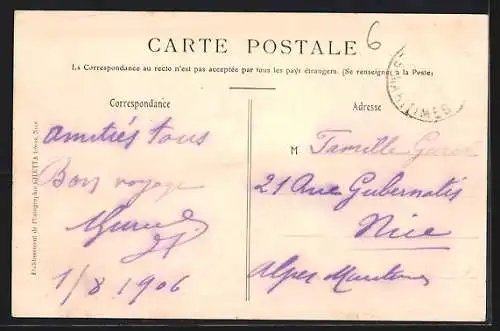 6
CARTE POSTALE
La Correspondance au recto n'est pas acceptée par tous les pays étrangers. (Se renseigner à la Poste)
S-MARITIMES
Correspondance
Adresse
amitiés tous
Bon voyage
1/8 1906
M Famille
21 Rue Gubernatis
Nice
Alpes Maritimes
Etablissement de Photographie GILETTA frères, Nice